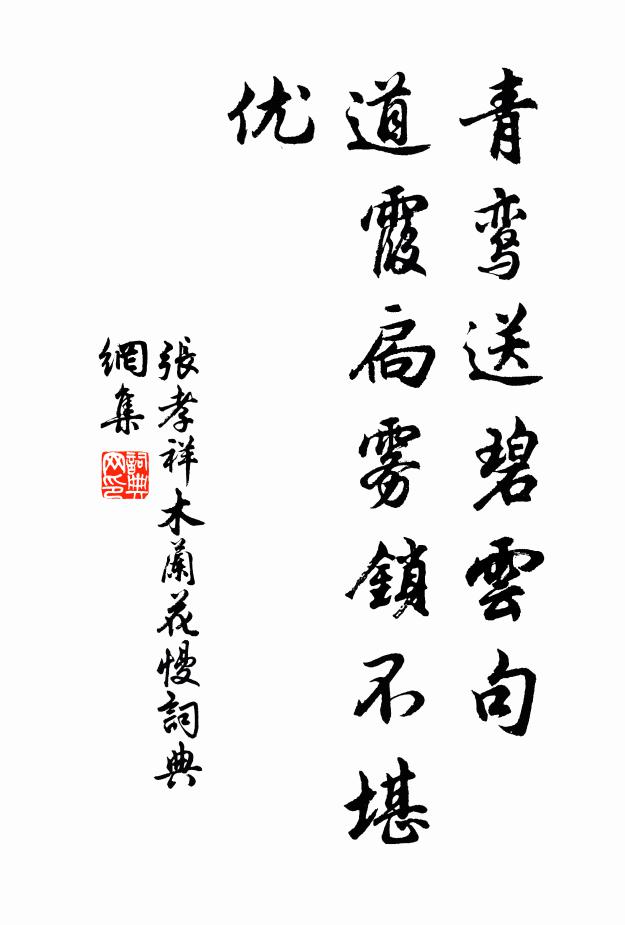 青鸾送碧雲句
道霞扃雾鎖不堪
优
張孝祥木蘭花慢詞典
網集
詞典
网印